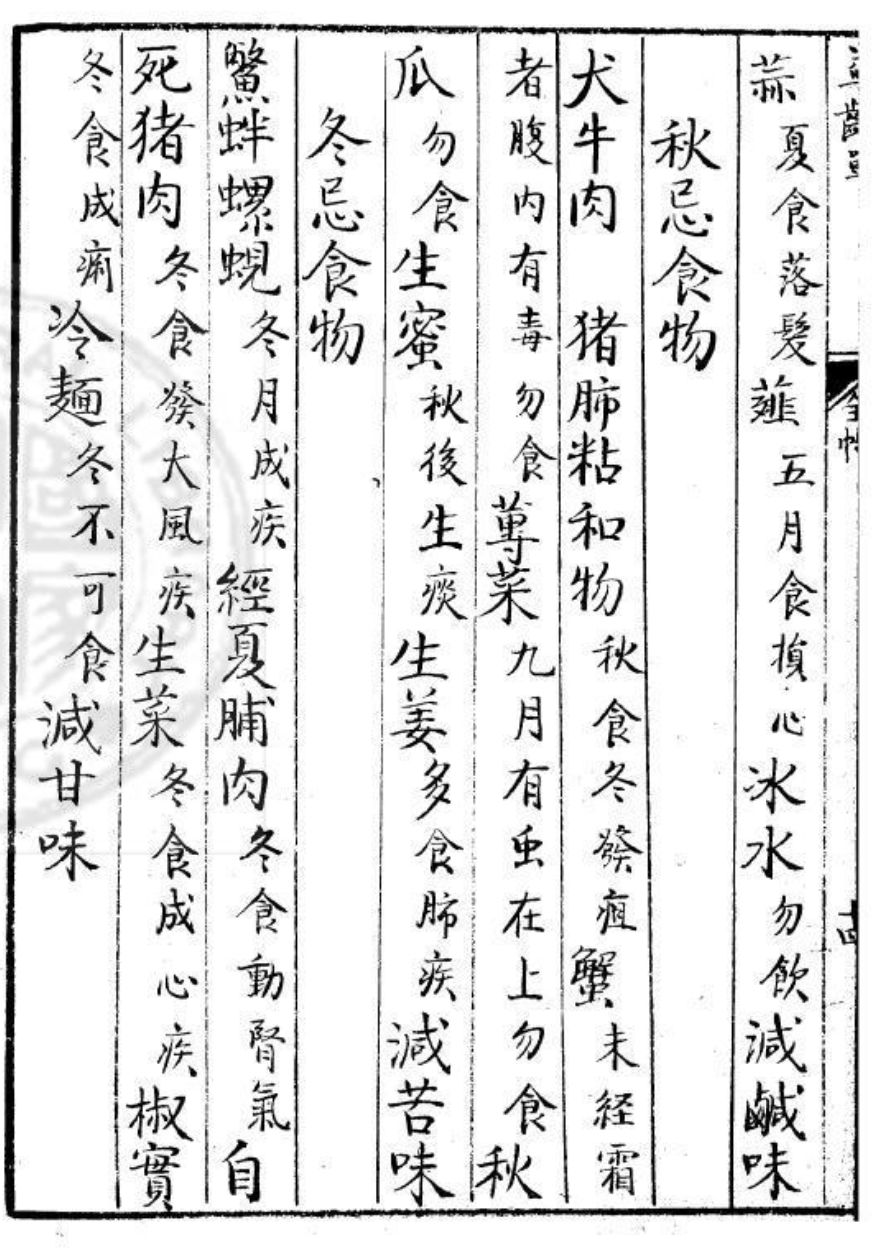 蒜夏食落髮薤五月食損心冰水勿飲減鹹味
秋忌食物
犬牛肉 猪肺粘和物秋食冬發疽蟹未経霜
者腹内有毒勿食蓴菜九月有虫在上勿食秋
瓜勿食生蜜秋後生痰生姜多食肺疾減苦味
冬忌食物
鱉蚌螺蜆冬月成疾經夏脯肉冬食動腎氣自
死猪肉冬食發大風疾生菜冬食成心疾椒實
冬食成痢冷麺冬不可食減甘味